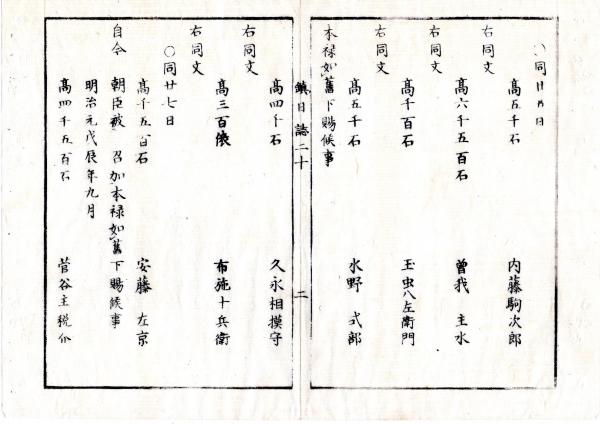 〇同廿五日
高五千石 内藤駒次郎
右同文
高六千五百石 曽我主水
右同文
高千百石 玉虫八左衛門
右同文
高五千石 水野式部
本禄如舊下賜候事
鎮日誌二十 二
高四千石 久永相摸守
右同文
高三百俵 布施十兵衛
右同文
〇同廿七日
高千五百石 安藤左京
自今 朝臣被 召加本禄如舊下賜候事
明治元戊辰年九月
高四千五百石 菅谷主税介